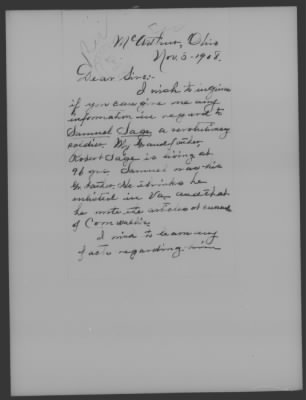 McArthur, Ohio
Nov. 3-1908.
Dear Sirs:-
I wish to inquire
if you can give me any
information in regard to
Samuel Sage, a revolutionary
soldier. My Grandfather,
Robert Sage is living at
96 yrs. Samuel was his
Gr. father. He thinks he
enlisted in Va. and that
he wrote the articles of
of Cornwallis.
I wish to learn any
facts regarding him